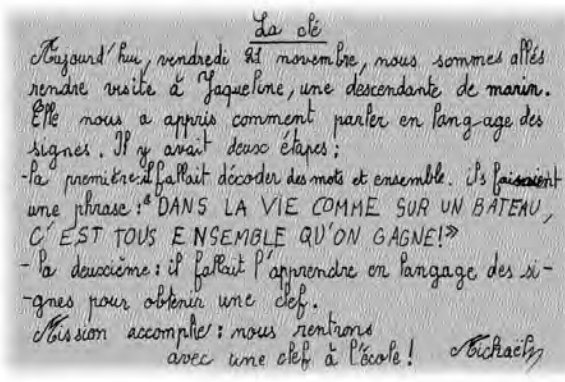 La clé
Aujourd'hui, vendredi 21 novembre, nous sommes allés
rendre visite à Jaqueline, une descendante de marin.
Elle nous a appris comment parler en lang-age des
signes. Il y avait deux étapes :
-la première:il fallait décoder des mots et ensemble. ils faisaient
une phrase : "DANS LA VIE COMME SUR UN BATEAU,
C'EST TOUS ENSEMBLE QU'ON GAGNE!»
- la deuxième : il fallait l'apprendre en langage des si-
-gnes pour obtenir une clef.
Mission accomplie : nous rentrons
avec une clef à l'école ! Michaël